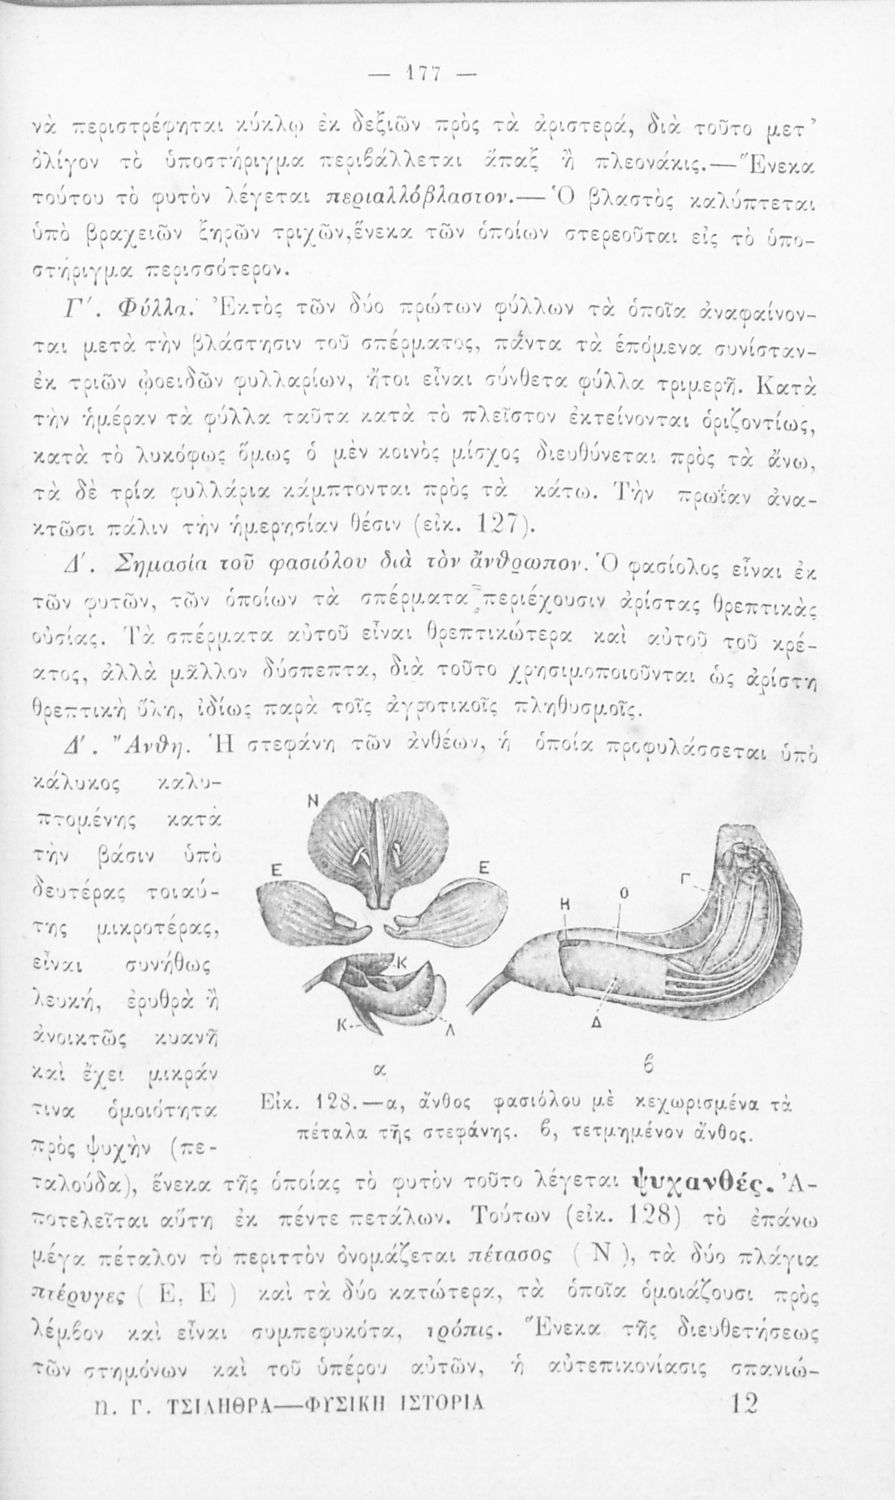 — 177 —
νὰ περιστρέφηται κύκλῳ ἐκ δεξιῶν πρὸς τὰ ἀριστερά, διὰ τοῦτο μετ'
ὀλίγον τὸ ὑποστήριγμα περιβάλλεται ἅπαξ ἢ πλεονάκις.—Ἕνεκα
τούτου τὸ φυτὸν λέγεται περιαλλόβλαστον.—Ὁ βλαστὸς καλύπτεται
ὑπὸ βραχειῶν ξηρῶν τριχῶν,ἕνεκα τῶν ὁποίων στερεοῦται εἰς τὸ ὑπο-
στήριγμα περισσότερον.
Γ'. Φύλλα. Ἐκτὸς τῶν δύο πρώτων φύλλων τὰ ὁποῖα ἀναφαίνον-
ται μετὰ τὴν βλάστησιν τοῦ σπέρματος, πάντα τὰ ἑπόμενα συνίσταν-
ἐκ τριῶν ᾠοειδῶν φυλλαρίων, ἤτοι εἶναι σύνθετα φύλλα τριμερῆ. Κατὰ
τὴν ἡμέραν τὰ φύλλα ταῦτα κατὰ τὸ πλεῖστον ἐκτείνονται ὁριζοντίως,
κατὰ τὸ λυκόφως ὅμως ὁ μὲν κοινὸς μίσχος διευθύνεται πρὸς τὰ ἄνω,
τὰ δὲ τρία φυλλάρια κάμπτονται πρὸς τὰ κάτω. Τὴν πρωΐαν ἀνα-
κτῶσι πάλιν τὴν ἡμερησίαν θέσιν (εἰκ. 127).
Δ'. Σημασία τοῦ φασιόλου διὰ τὸν ἄνθρωπον. Ὁ φασίολος εἶναι ἐκ
τῶν φυτῶν, τῶν ὁποίων τὰ σπέρματα περιέχουσιν ἀρίστας θρεπτικὰς
οὐσίας. Τὰ σπέρματα αὐτοῦ εἶναι θρεπτικώτερα καὶ αὐτοῦ τοῦ κρέ-
ατος, ἀλλὰ μᾶλλον δύσπεπτα, διὰ τοῦτο χρησιμοποιοῦνται ὡς ἀρίστη
θρεπτικὴ ὕλη, ἰδίως παρὰ τοῖς ἀγροτικοῖς πληθυσμοῖς.
Δ'. Ἄνθη. Ἡ στεφάνη τῶν ἀνθέων, ἡ ὁποία προφυλάσσεται ὑπὸ
κάλυκος καλυ-
πτομένης κατὰ
τὴν βάσιν ὑπὸ
δευτέρας τοιαύ-
της μικροτέρας,
εἶναι συνήθως
λευκή, ἐρυθρὰ ἢ
ἀνοικτῶς κυανῆ
καὶ ἔχει μικράν
τινα ὁμοιότητα
πρὸς ψυχὴν (πε-
Ν
Ε
Ε
Κ
Κ
Λ
Η
Ο
Γ
Δ
α
β
Εἰκ. 128.—α, ἄνθος φασιόλου μὲ κεχωρισμένα τὰ
πέταλα τῆς στεφάνης. β, τετμημένον ἄνθος.
ταλούδα), ἕνεκα τῆς ὁποίας τὸ φυτὸν τοῦτο λέγεται ψυχανθές. Ἀ-
ποτελεῖται αὕτη ἐκ πέντε πετάλων. Τούτων (εἰκ. 128) τὸ ἐπάνω
μέγα πέταλον τὸ περιττὸν ὀνομάζεται πέτασος ( Ν ), τὰ δύο πλάγια
πτέρυγες ( Ε. Ε ) καὶ τὰ δύο κατώτερα, τὰ ὁποῖα ὁμοιάζουσι πρὸς
λέμβον καὶ εἶναι συμπεφυκότα, τρόπις. Ἕνεκα τῆς διευθετήσεως
τῶν στημόνων καὶ τοῦ ὑπέρου αὐτῶν, ἡ αὐτεπικονίασις σπανιώ-
Π. Γ. ΤΣΙΛΗΘΡΑ—ΦΥΣΙΚΗ ΙΣΤΟΡΙΑ 12